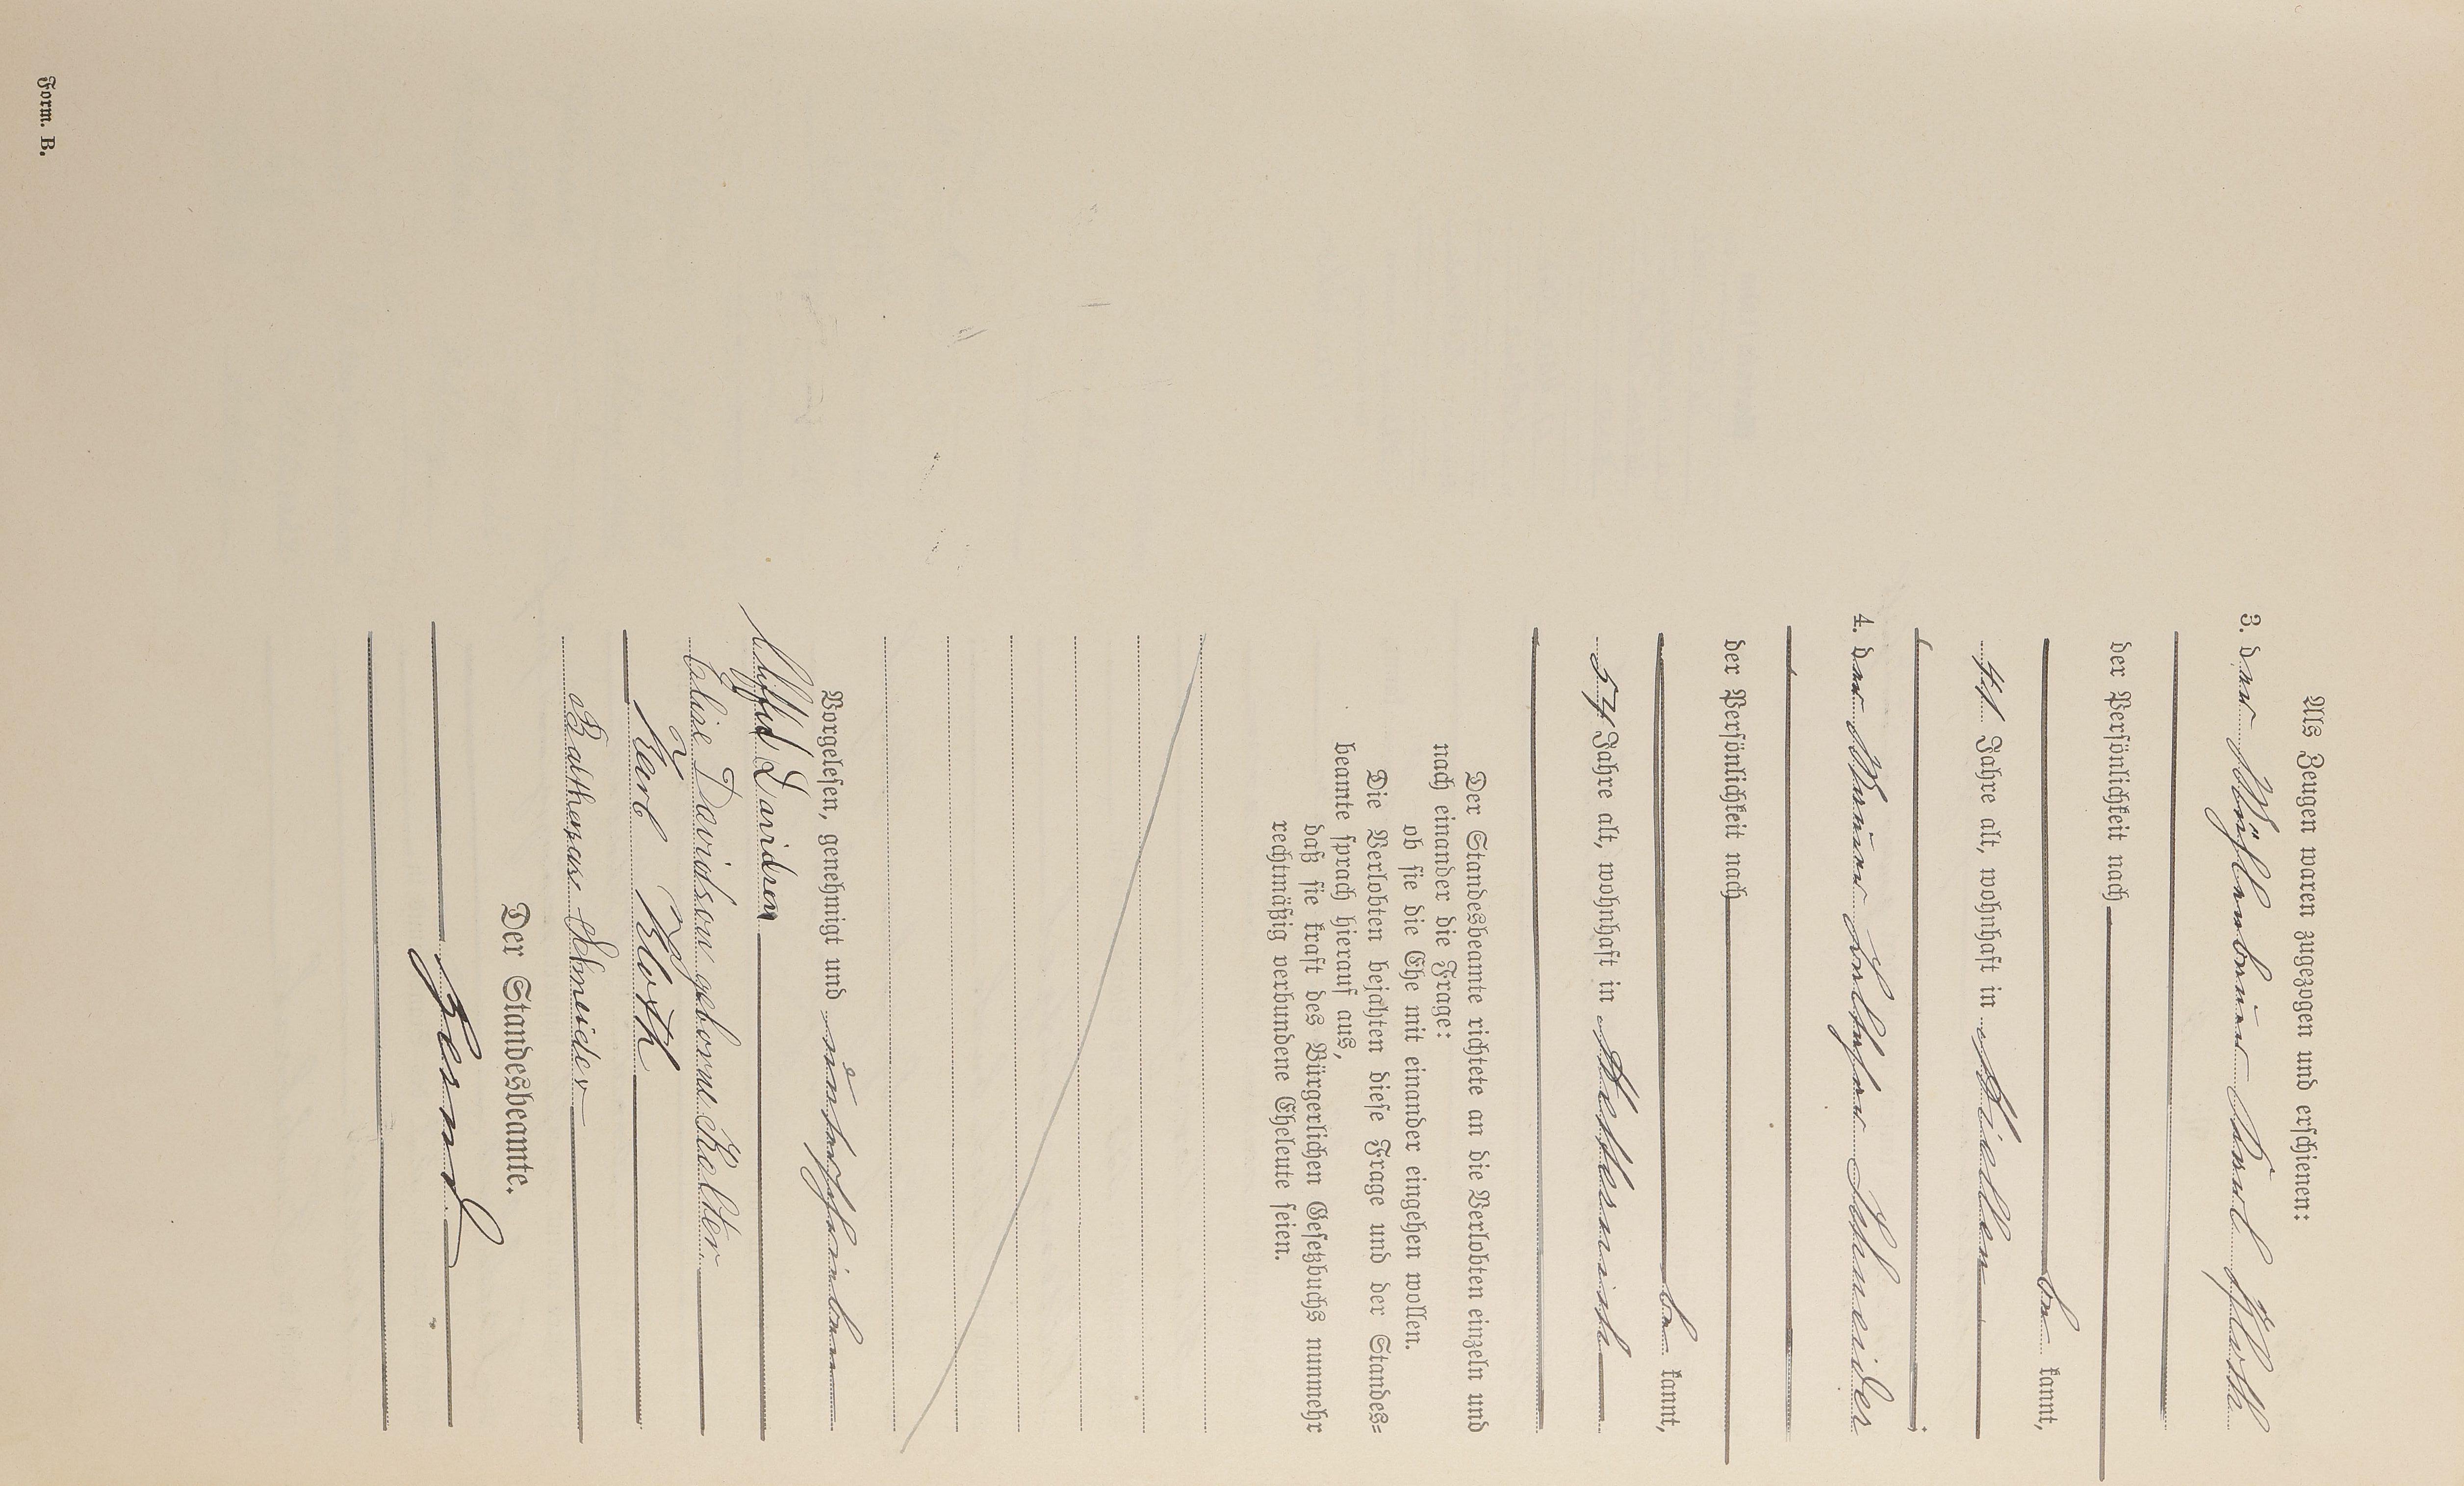 Als Zeugen waren zugezogen und erschienen:
3. der Mühlenbauer Karl Kloth
der Persönlichkeit nach
be kannt,
41 Jahre alt, wohnhaft in
4. der Maurer Balthasar Schneider
;
der Persönlichkeit nach
be kannt,
54 Jahre alt, wohnhaft in
Der Standesbeamte richtete an die Verlobten einzeln und
nach einander die Frage:
ob sie die Ehe mit einander eingehen wollen.
Die Verlobten bejahten diese Frage und der Standes-
beamte sprach hierauf aus,
daß sie kraft des Bürgerlichen Gesetzbuchs nunmehr
rechtmäßig verbundene Eheleute seien.
Vorgelesen, genehmigt und unterschrieben
Davidson
Elise Davidson geborene Kalter.
Karl Kloth
Balthasar Schneider
Der Standesbeamte.
Form. B.